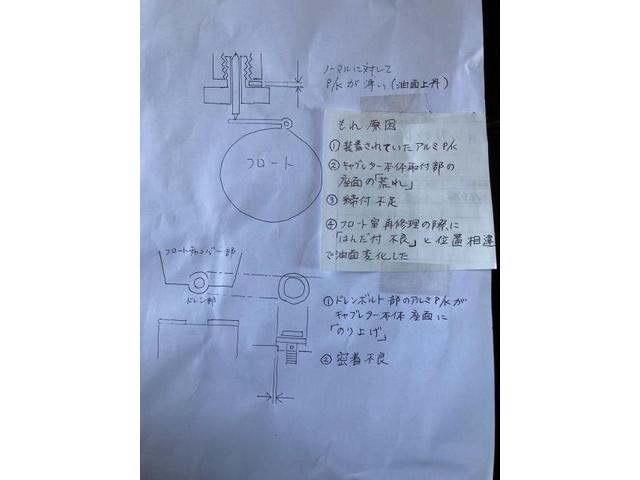 ノーマルに対して
P/Kが薄い(油面上昇)
もれ原因
① 装着されていたアルミP/K
② キャブレター本体取付部の
座面の「荒れ」
③ 締付不足
④ フロート室再修理の際に
「はんだ付不良」と位置相違
で油面変化した
フロート
フロートチャンバー部
ドレン部
① ドレンボルト部のアルミP/Kが
キャブレター本体座面に
「のり上げ」
② 密着不良